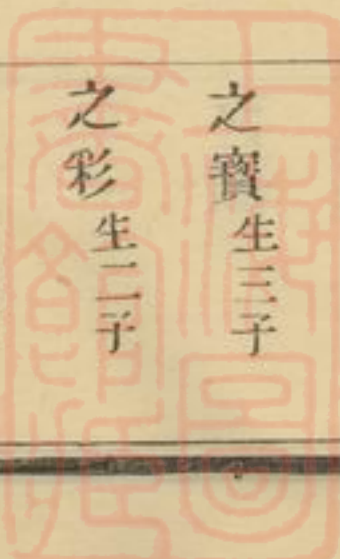 之寶生三子
之彩生二子